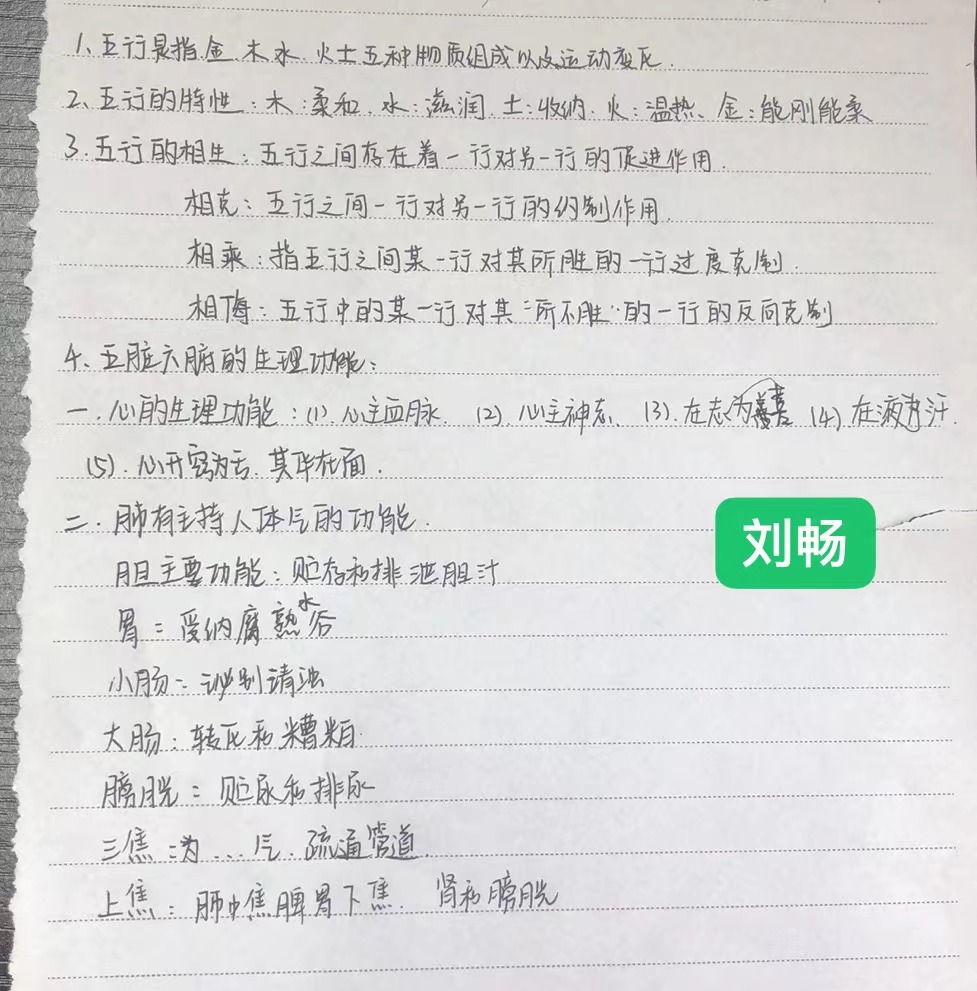 1、五行是指.金.木水.火土五种物质组成以及运动变化.
2、五行的特性:木:柔和.水:滋润.土:收纳.火:温热、金:能刚能柔
3.五行的相生:五行之间存在着一行对另一行的促进作用.
相克:五行之间一行对另一行的约制作用.
相乘:指五行之间某一行对其所胜的一行过度克制.
相侮:五行中的某一行对其"所不胜"的一行的反向克制
4、五脏六腑的生理功能:
一.心的生理功能:(1).心主血脉. (2).心主神志. (3).在志为喜 (4).在液为汗.
(5).心开窍为舌.其华在面.
二.肺有主持人体气的功能.
刘畅
胆主要功能:贮存和排泄胆汁
胃:受纳腐熟水谷
小肠:泌别清浊
大肠:转化和糟粕.
膀胱:贮尿和排尿
三焦:为...气.疏通管道.
上焦:肺中焦脾胃下焦.肾和膀胱